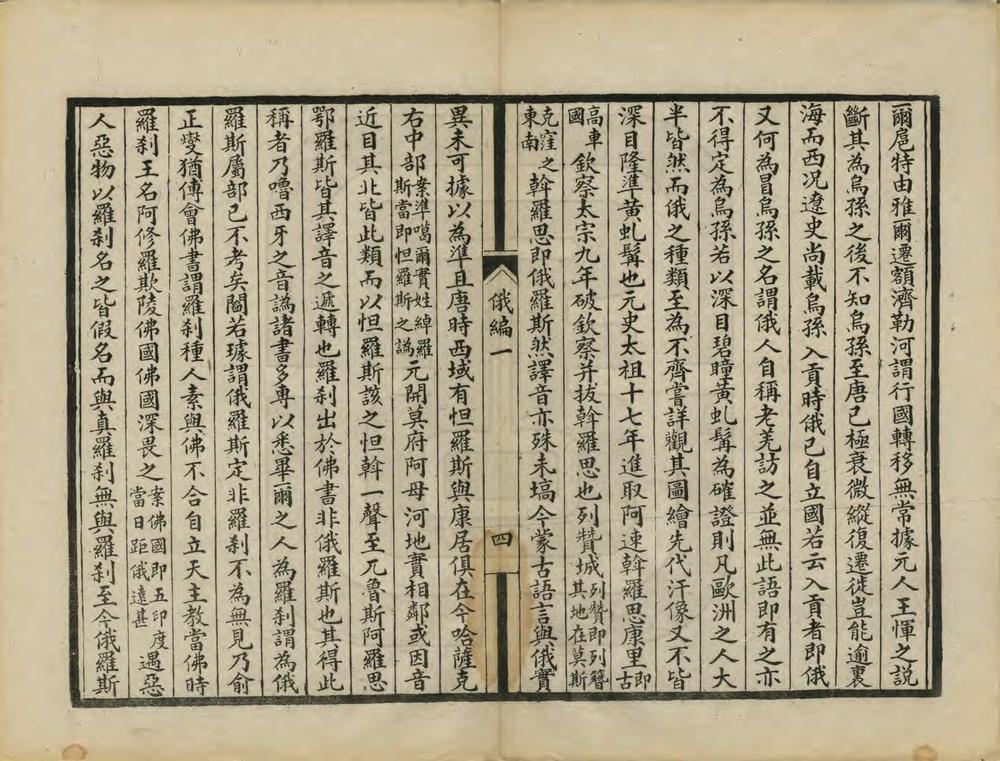 爾扈特由雅爾遷額濟勒河謂行國轉移無常據元人王惲之說
斷其為烏孫之後不知烏孫至唐已極衰微縱復遷徙豈能逾裏
海而西况遼史尚載烏孫入貢時俄已自立國若云入貢者即俄
又何為冒烏孫之名謂俄人自稱老羌訪之並無此語即有之亦
不得定為烏孫若以深目碧瞳黃虬髯為確證則凡歐洲之人大
半皆然而俄之種類至為不齊嘗詳觀其圖繪先代汗像又不皆
深目隆準黃虬髯也元史太祖十七年進取阿速斡羅思康里即古
高車國欽察太宗九年破欽察并拔斡羅思也列贊城列贊即列簪其地在莫斯
克窪之東南之斡羅思即俄羅斯然譯音亦殊未塙今蒙古語言與俄實
俄編一
四
異未可據以為準且唐時西域有怛羅斯與康居俱在今哈薩克
右中部案準噶爾實姓綽羅斯當即怛羅斯之譌元開莫府阿母河地實相鄰或因音
近目其北皆此類而以怛羅斯該之怛斡一聲至兀魯斯阿羅思
鄂羅斯皆其譯音之遞轉也羅刹出於佛書非俄羅斯也其得此
稱者乃嚕西牙之音譌諸書多專以悉畢爾之人為羅刹謂為俄
羅斯屬部已不考矣閻若璩謂俄羅斯定非羅刹不為無見乃俞
正燮猶傅會佛書謂羅刹種人素與佛不合自立天主教當佛時
羅刹王名阿修羅欺陵佛國佛國深畏之案佛國即五印度當日距俄遠甚遇惡
人惡物以羅刹名之皆假名而與真羅刹無與羅刹至今俄羅斯